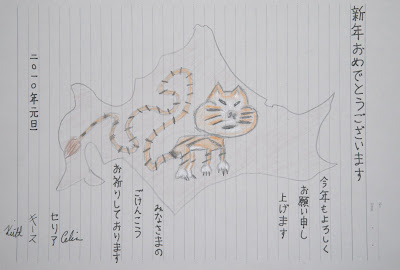 新年おめでとうございます
今年もよろしく
お願い申し
上げます
みなさまの
ごけんこう
お祈りしております
二〇一〇年元旦
セリア Celia
キース Keith